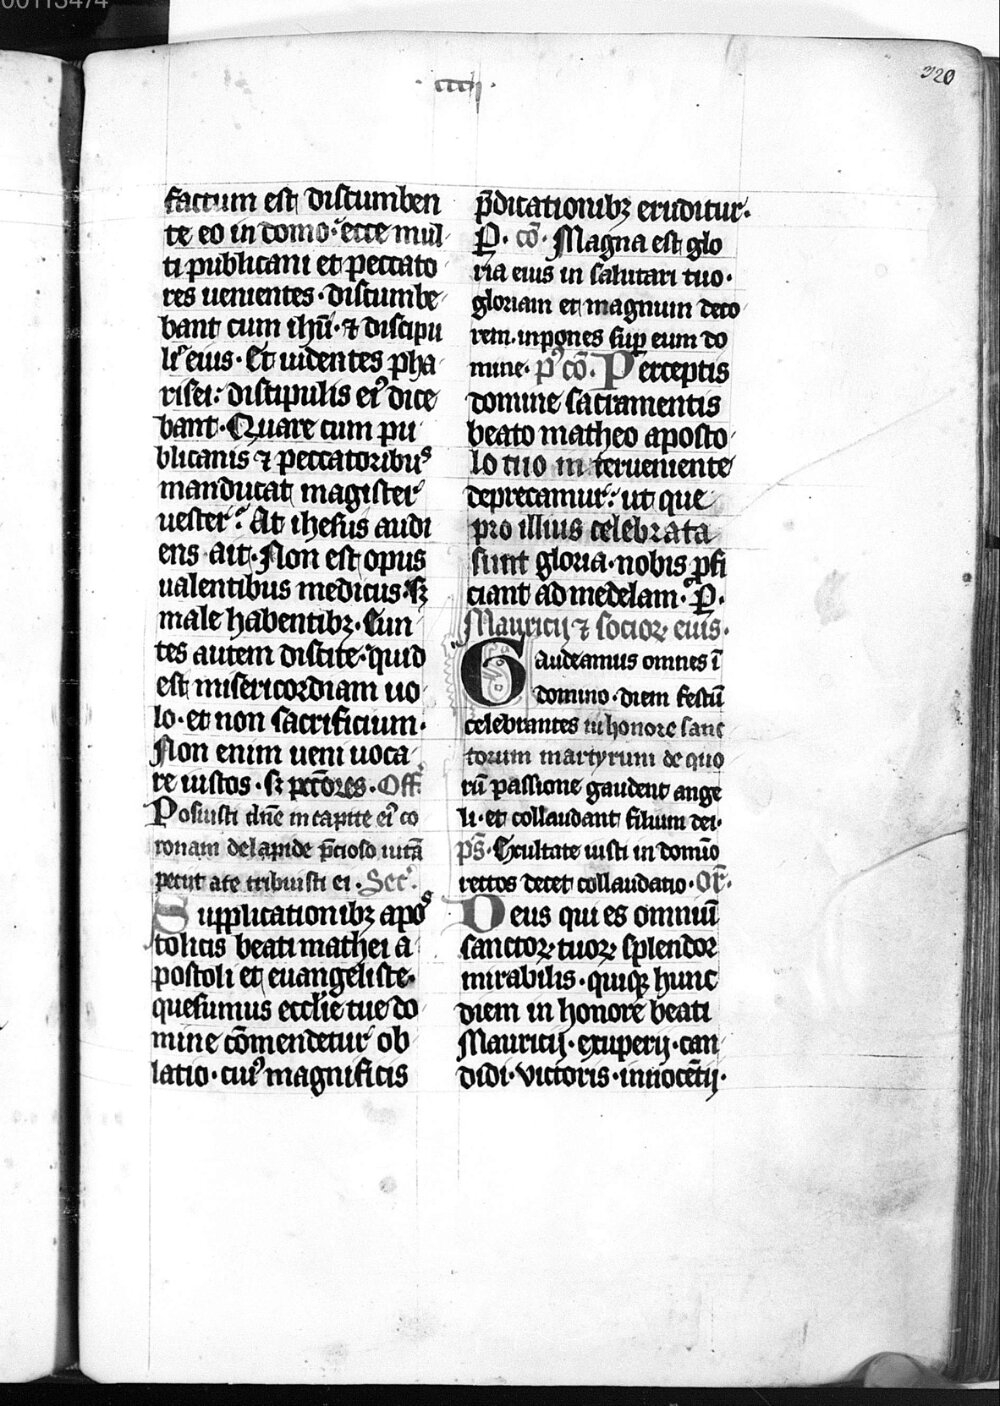 00113474
320
· ccclj ·
factum est discumben
te eo in domo· ecce mul
ti publicani et peccato
res uenientes· discumbe
bant cum ihū· ⁊ discipu
li eius· Et uidentes pha
risei: discipulis eiꝰ dice
bant· Quare cum pu
blicanis ⁊ peccatoribuˢ
manducat magister
uester? At ihesus audi
ens ait· Non est opus
ualentibus medicus· sꝫ
male habentibꝫ· Eun
tes autem discite· quid
est misericordiam uo
lo· et non sacrificium·
Non enim ueni uoca
re iustos· sꝫ pctōres· Off̄
Posuisti dn̄e in capite eiꝰ co
ronam de lapide p̄cioso uitā
petiit a te tribuisti ei· Secꝰ·
Supplicationibꝫ apoˢ
tolicis beati mathei a
postoli et euangeliste·
quesumus ecclīe tue do
mine cōmendetur ob
latio· cuiꝰ magnificis
p̄dicationibꝫ eruditur·
P· cō· Magna est glo
ria eius in salutari tuo·
gloriam et magnum deco
rem· inpones suꝑ eum do
mine· pꝰ cō· Perceptis
domine sacramentis
beato matheo aposto
lo tuo interueniente
deprecamur: ut que
pro illius celebrata
sunt gloria· nobis ꝓfi
ciant ad medelam· P·
Mauricij ⁊ socioꝝ eius·
Gaudeamus omnes ī
domino· diem festū
celebrantes in honore sanc
torum martyrum de quo
rū passione gaudent ange
li· et collaudant filium dei·
ps̄· Exultate iusti in domīo
rectos decet collaudatio· Or̄·
Deus qui es omniū
sanctoꝝ tuoꝝ splendor
mirabilis· quiqꝫ hunc
diem in honore beati
Mauricij· exuperij· can
didi· victoris· innocētij·